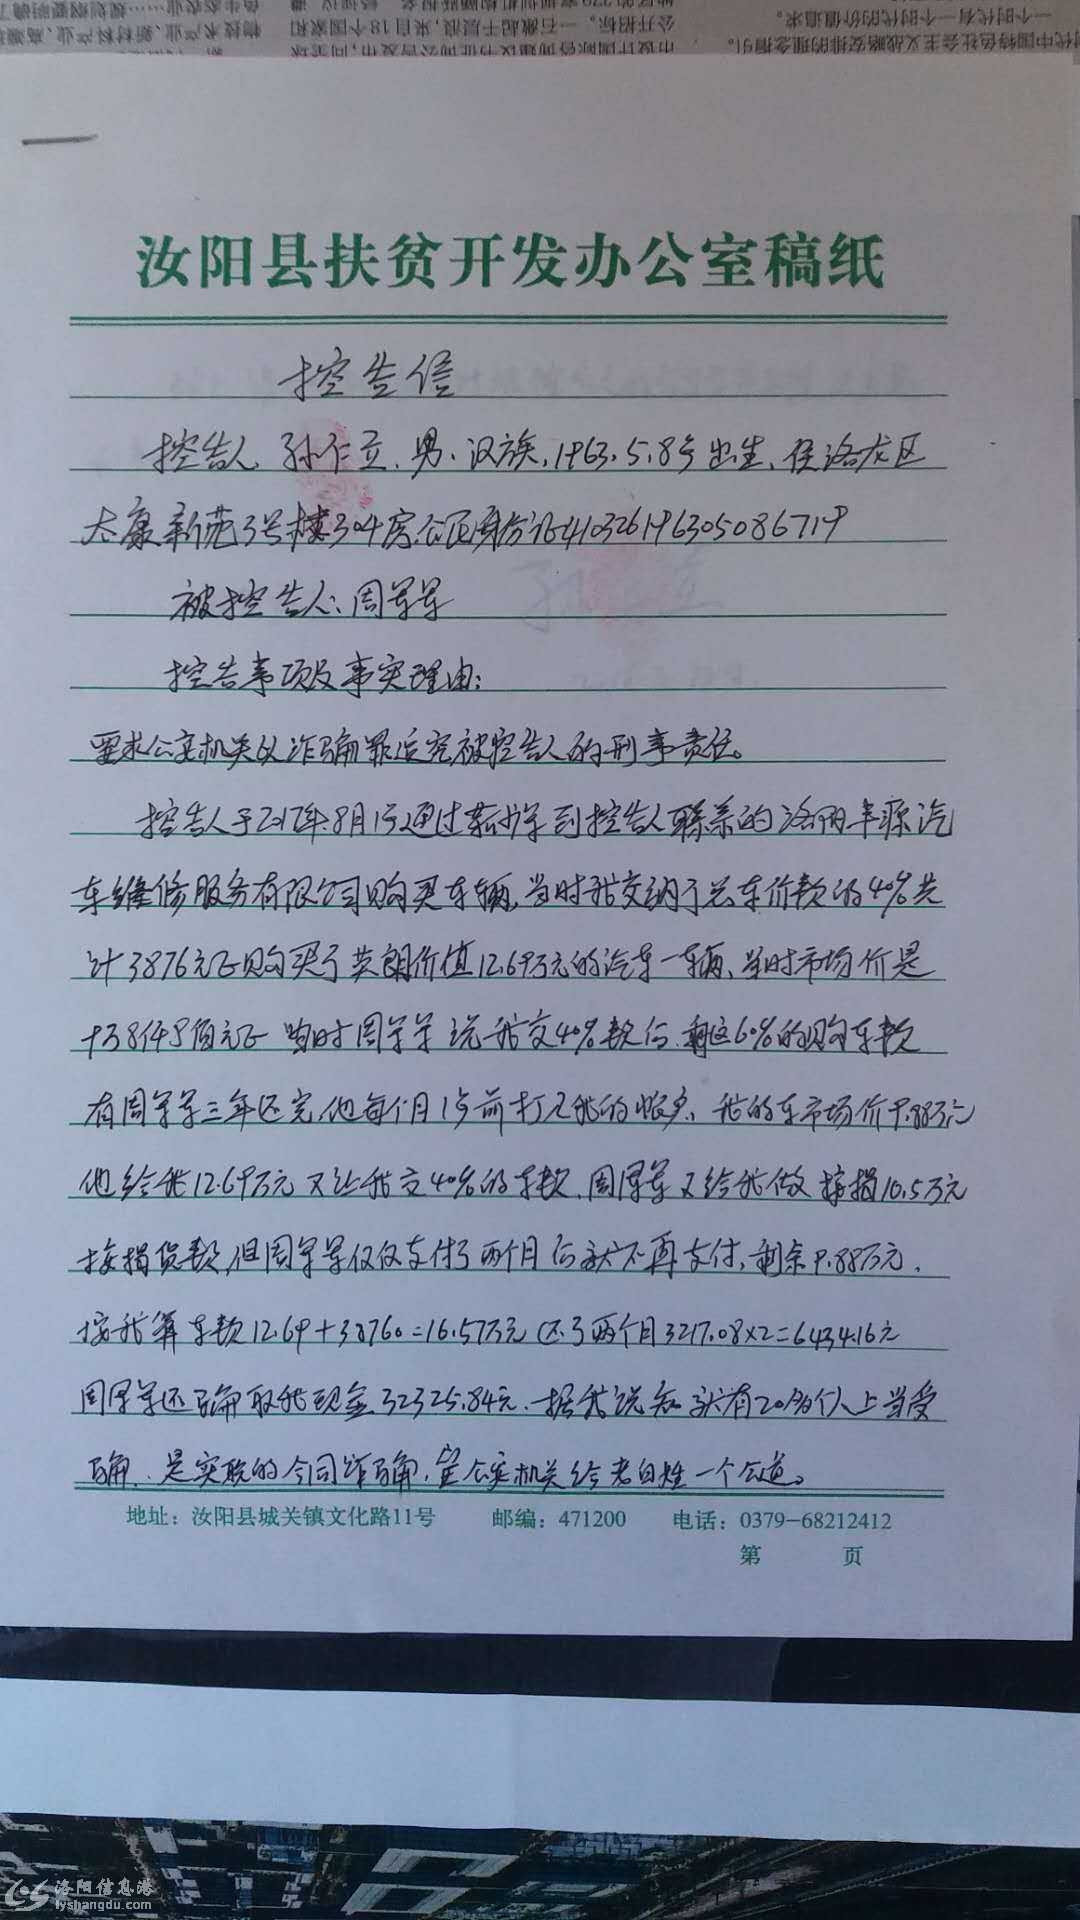 汝阳县扶贫开发办公室稿纸
控告信
控告人 孙仁立、男、汉族,1963.5.8号出生、住洛龙区
太康新苑3号楼304房公民身份证410326196305086719
被控告人:周军军
控告事项及事实理由:
要求公安机关以诈骗罪追究被控告人的刑事责任。
控告人于2017年8月1号通过 到控告人联系的洛阳丰源汽
车维修服务有限公司购买车辆,当时我交纳了总车价款的40%共
计3876元正购买了英朗价值12.69万元的汽车一辆、当时市场价是
周军军说我交40%款后、剩这60%的购车款
有周军军三年还完,他每个月1号前打入我的帐户、我的车市场价9.88万元
他给我12.69万元又让我交40%的车款,周军军又给我做按揭10.5万元
按揭贷款,但周军军仅仅支付了两个月后就不再支付,剩余9.88万元,
按我算车款12.69+38760=16.57万元还了两个月3217.08×2=6434.16元
周军军还骗取我现金32325.84元.据我说知就有20多个人上当受
骗、是实般的合同诈骗,望公安机关给老百姓一个公道。
地址:汝阳县城关镇文化路11号 邮编:471200 电话:0379-68212412
第 页
洛阳信息港
lyshangdu.com